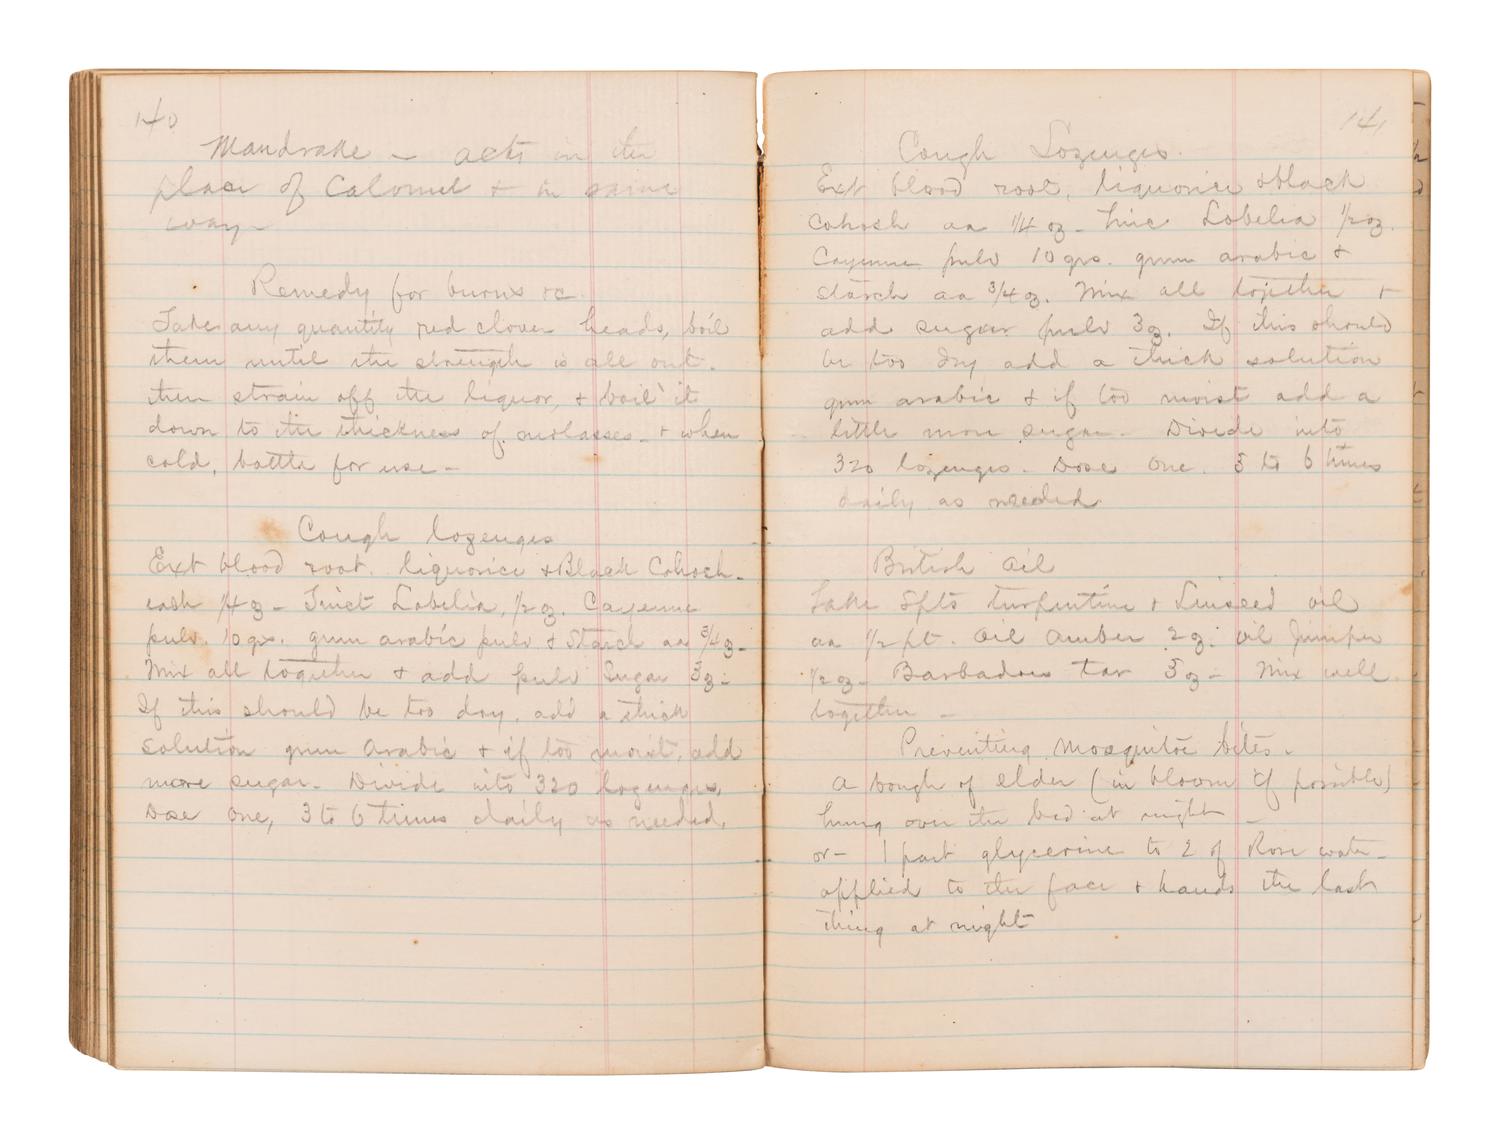 140
Mandrake — acts in the
place of Calomel + in same
way —
Remedy for burns &c
Take any quantity red clover heads, boil
them until the strength is all out.
then strain off the liquor, & boil it
down to the thickness of molasses — + when
cold, bottle for use —
Cough lozenges
Ext blood root. liquorice + Black Cohosh —
each 1/4 oz — Tinct Lobelia, 1/2 oz. Cayenne
pulv. 10 grs. gum arabic pulv & Starch aa 3/4 oz —
Mix all together + add pulv Sugar 3 oz —
If this should be too dry, add a thick
solution gum arabic + if too moist, add
more sugar. Divide into 320 lozenges,
Dose one, 3 to 6 times daily as needed.
141
Cough Lozenges.
Ext blood root, liquorice + black
cohosh aa 1/4 oz — Tinc Lobelia 1/2 oz.
Cayenne pulv 10 grs. gum arabic +
starch aa 3/4 oz. Mix all together +
add sugar pulv 3 oz. If this should
be too dry add a thick solution
gum arabic + if too moist add a
little more sugar — Divide into
320 lozenges. Dose one. 3 to 6 times
daily as needed
British Oil
Take Spts turpentine + Linseed oil
aa 1/2 pt. Oil Amber 2 oz. oil Juniper
1/2 oz — Barbadoes tar 3 oz — Mix well
together —
Preventing mosquitoe bites —
A bough of elder (in bloom if possible)
hung over the bed at night —
or — 1 part glycerine to 2 of Rose water —
applied to the face + hands the last
thing at night